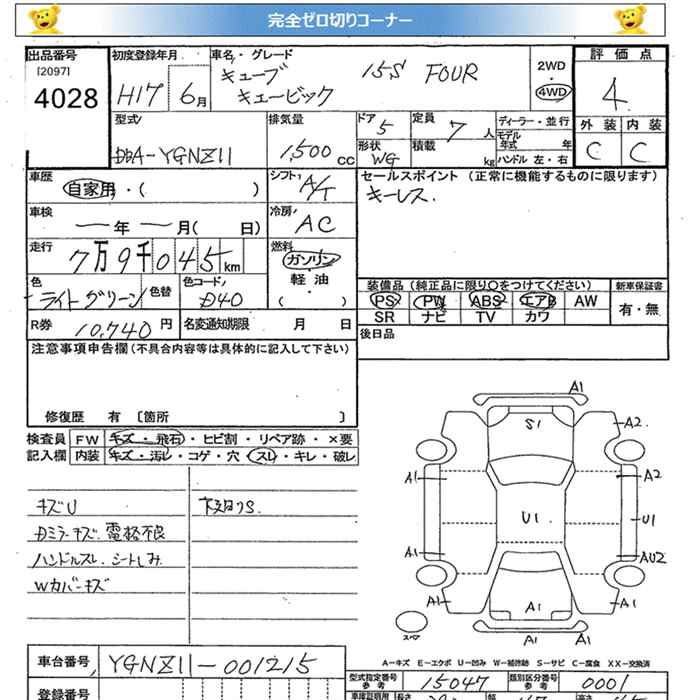 完全ゼロ切りコーナー
出品番号 初度登録年月 車名・グレード 評価点
[2097] キューブ 15S FOUR 2WD
4028 H17 6月 キュービック 4WD 4
型式 排気量 ドア 5 定員 7 人 ディーラー・並行 外装 内装
モデル年式 年
DBA-YGNZ11 1,500 cc 形状 WG 積載 kg ハンドル 左・右 C C
車歴 自家用・( ) シフト A/T セールスポイント (正常に機能するものに限ります)
キーレス.
車検 ー年ー月( 日) 冷房 AC
走行 7万9千045km 燃料 ガソリン
軽・油
( )
色 ライトグリーン 色替 色コード D40
装備品 (純正品に限り○をつけてください) 新車保証書
PS PW ABS エアB AW 有・無
SR ナビ TV カワ
R券 10,740 円 名変通知期限 月 日 後日品
注意事項申告欄(不具合内容等は具体的に記入して下さい)
修復歴 有 [箇所 ]
検査員 FW キズ・飛石・ヒビ割・リペア跡・×要
記入欄 内装 キズ・汚レ・コゲ・穴・スレ・キレ・破レ
キズU 下廻りS.
Dミラーキズ.電格不良
ハンドルスレ.シートしみ
Wカバーキズ
A1
S1 A2
A1 A2
U1 U1
A1 AU2
A1 A1 A1
A1
スペア
A-キズ E-エクボ U-凹み W-補修跡 S-サビ C-腐食 XX-交換済
車台番号 YGNZ11-001215
型式指定番号 参考 15047 類別区分番号 参考 0001
登録番号